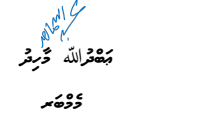 ޢަބްދުﷲ މާހިދު
މެމްބަރ